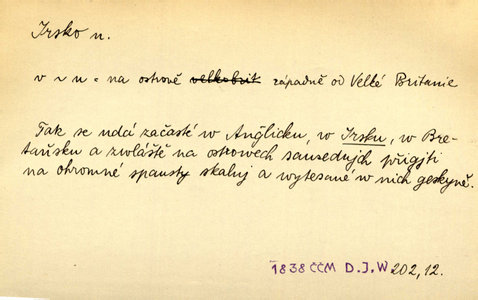 Irsko n.
v ~ u = na ostrově velkobrit západně od Velké Britanie
Tak se udá začasté w Anglicku, w Irsku, w Bre-
taňsku a zwláště na ostrowech sausedných přigjti
na ohromné spausty skalnj a wytesané w nich geskyně.
1838 ČČM D.J.W 202,12.